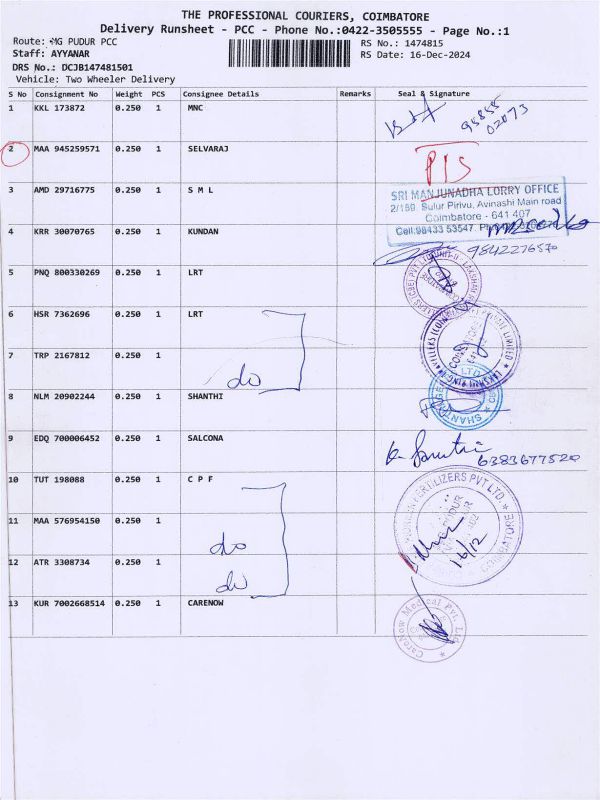 THE PROFESSIONAL COURIERS, COIMBATORE
Delivery Runsheet - PCC - Phone No.:0422-3505555 - Page No.:1
Route: MG PUDUR PCC
RS No.: 1474815
Staff: AYYANAR
RS Date: 16-Dec-2024
DRS No.: DCJB147481501
Vehicle: Two Wheeler Delivery
S No Consignment No Weight PCS Consignee Details Remarks Seal & Signature
1 KKL 173872 0.250 1 MNC
95855
02073
2 MAA 945259571 0.250 1 SELVARAJ
PIS
3 AMD 29716775 0.250 1 S M L
SRI MANJUNADHA LORRY OFFICE
2/159, Sulur Pirivu, Avinashi Main road
Coimbatore - 641 407
Cell:98433 53547
4 KRR 30070765 0.250 1 KUNDAN
9842276570
5 PNQ 800330269 0.250 1 LRT
6 HSR 7362696 0.250 1 LRT
7 TRP 2167812 0.250 1
do
8 NLM 20902244 0.250 1 SHANTHI
9 EDQ 700006452 0.250 1 SALCONA
6383677520
10 TUT 198088 0.250 1 C P F
FERTILIZERS PVT LTD.
11 MAA 576954150 0.250 1
do
16/12
12 ATR 3308734 0.250 1
do
13 KUR 7002668514 0.250 1 CARENOW
CareNow Medical Pvt. Ltd.